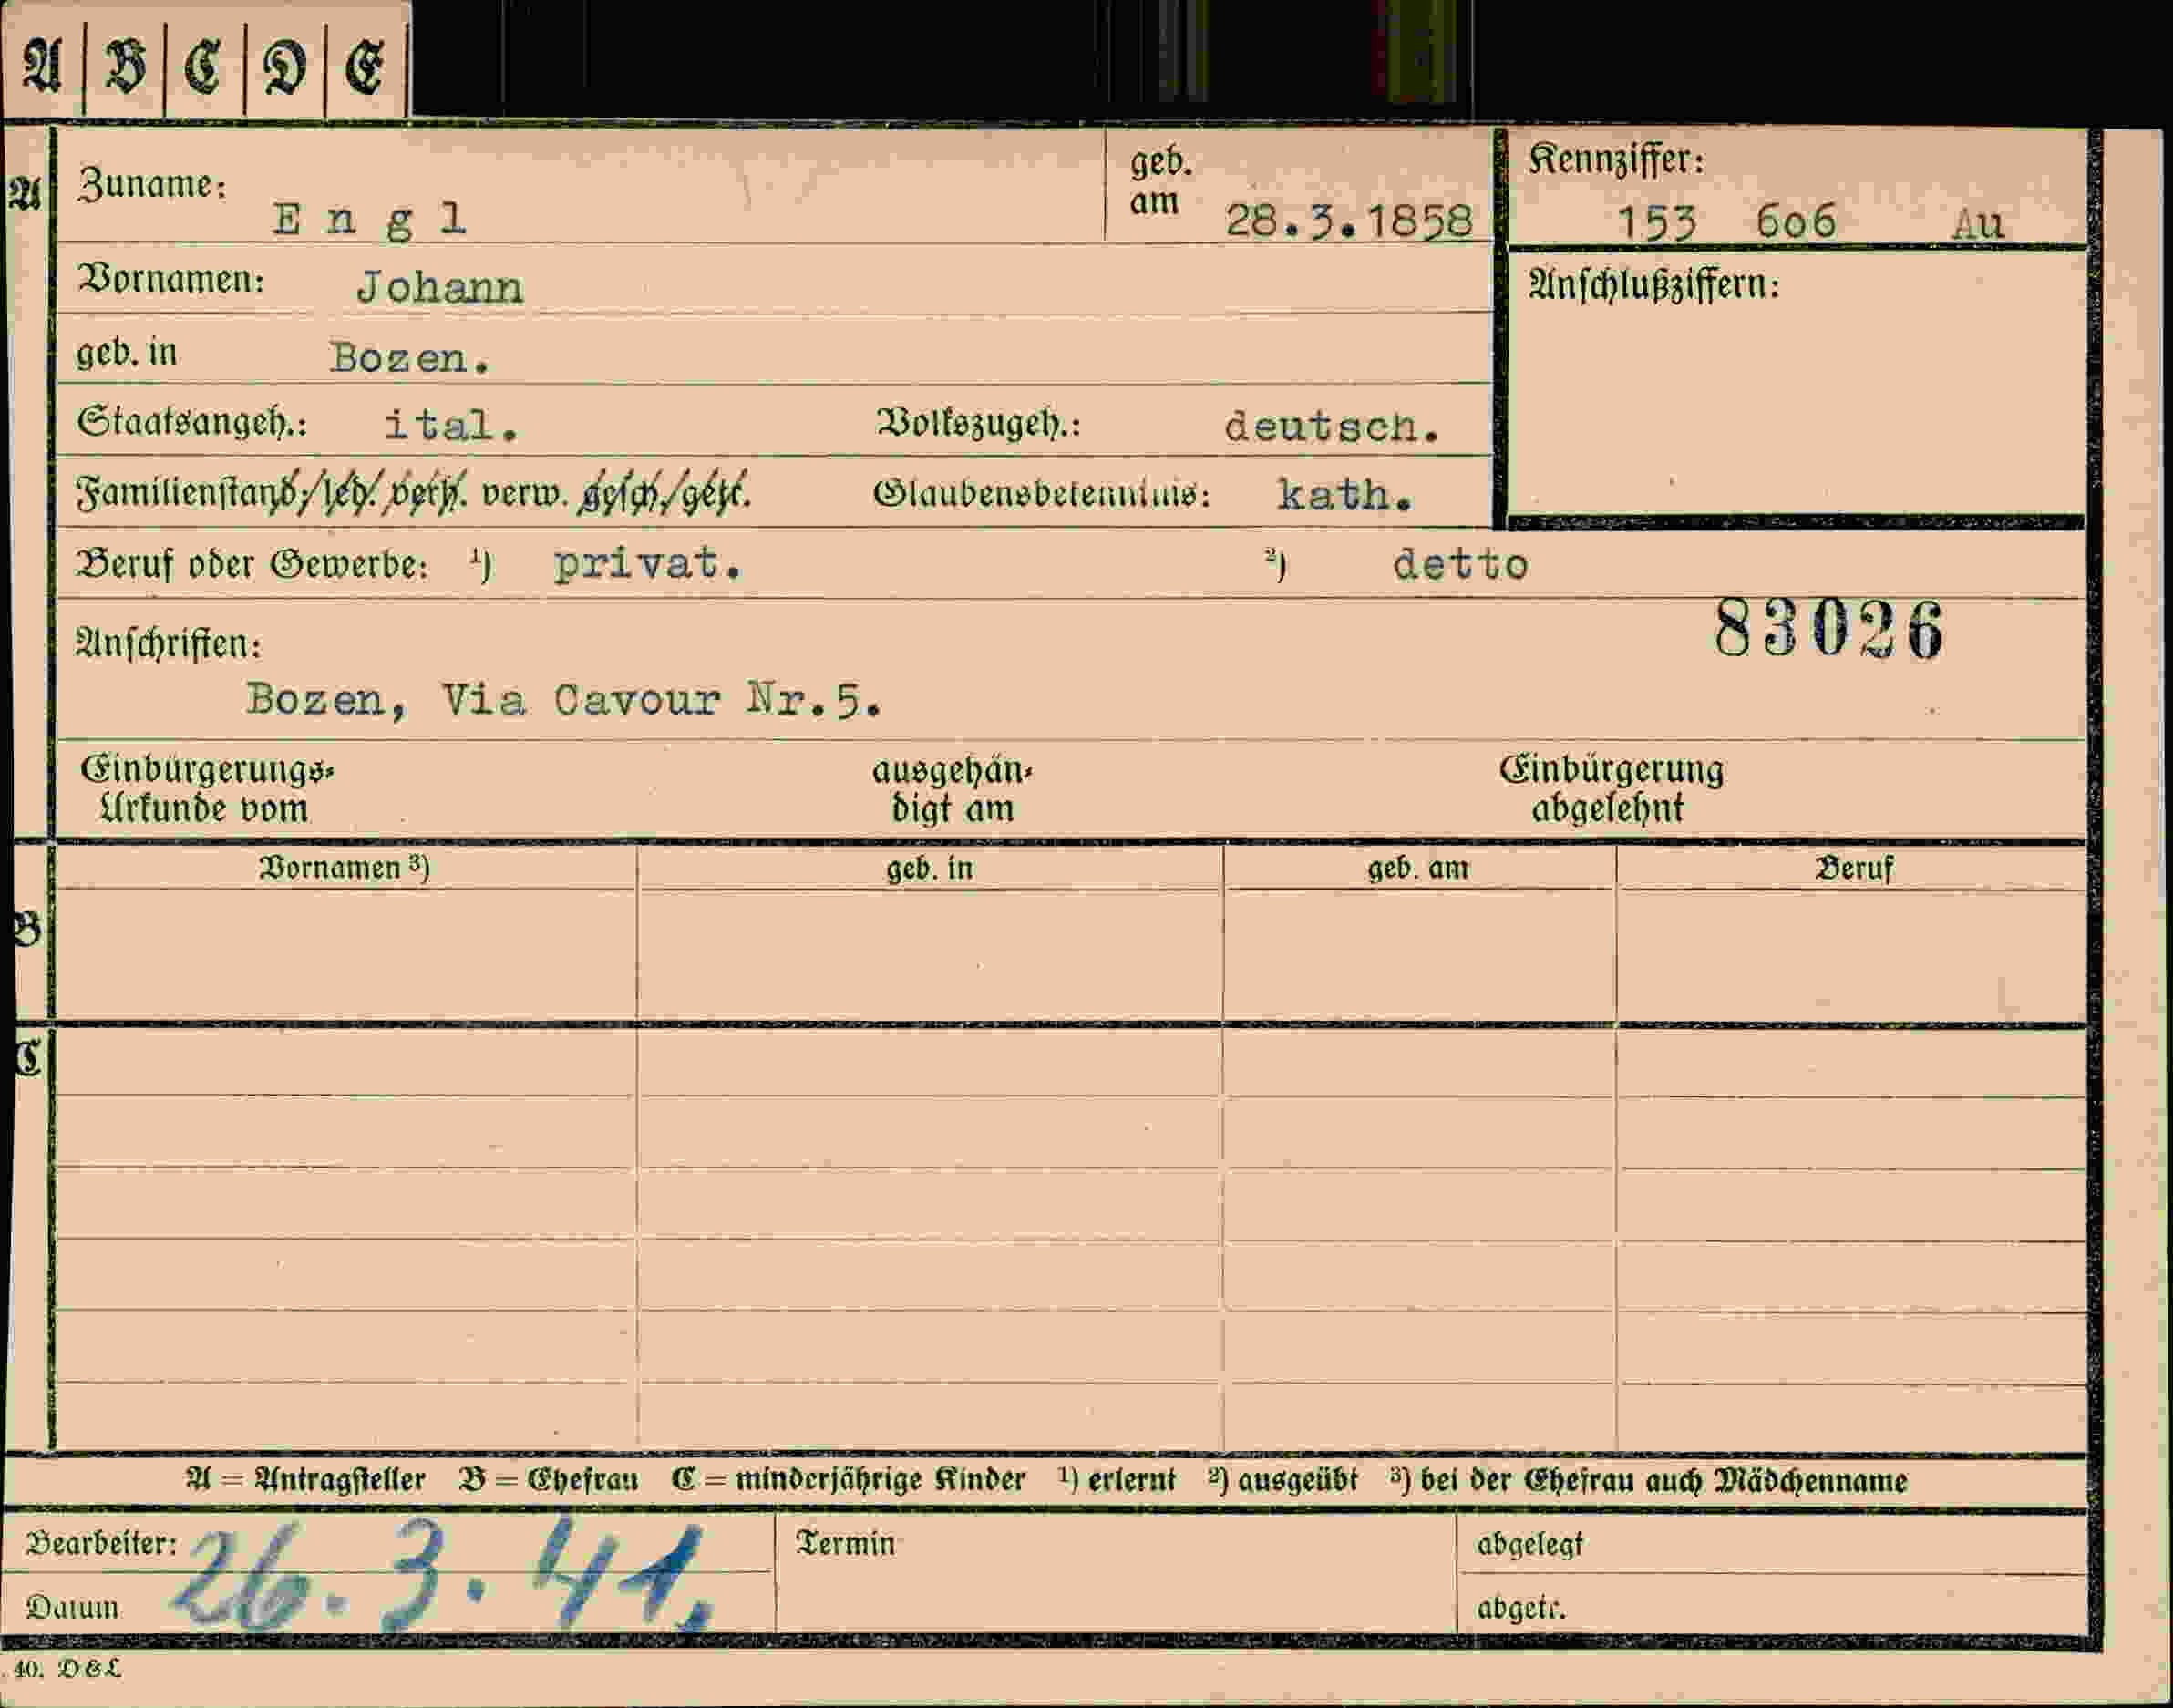 A B C D E
A
Zuname: Engl geb. am 28.3.1858 Kennziffer: 153 6o6 Au
Vornamen: Johann Anschlußziffern:
geb. in Bozen.
Staatsangeh.: ital. Volkszugeh.: deutsch.
Familienstand: led. verh. verw. gesch. getr. Glaubensbekenntnis: kath.
Beruf oder Gewerbe: ¹) privat. ²) detto
83026
Anschriften:
Bozen, Via Cavour Nr.5.
Einbürgerungs- ausgehän- Einbürgerung
Urkunde vom digt am abgelehnt
Vornamen ³) geb. in geb. am Beruf
B
C
A = Antragsteller B = Ehefrau C = minderjährige Kinder ¹) erlernt ²) ausgeübt ³) bei der Ehefrau auch Mädchenname
Bearbeiter: Termin abgelegt
26.3.41.
Datum abgetr.
40. D & L